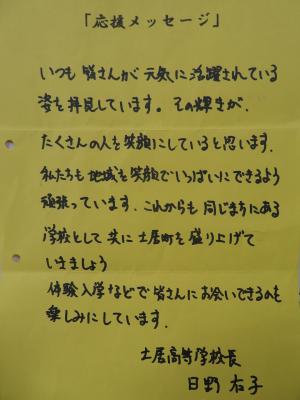 「応援メッセージ」
いつも皆さんが元気に活躍されている
姿を拝見しています。その輝きが、
たくさんの人を笑顔にしていると思います。
私たちも地域を笑顔でいっぱいにできるよう
頑張っています。これからも同じまちにある
学校として共に土居町を盛り上げて
いきましょう
体験入学などで皆さんにお会いできるのを
楽しみにしています。
土居高等学校長
日野 右子